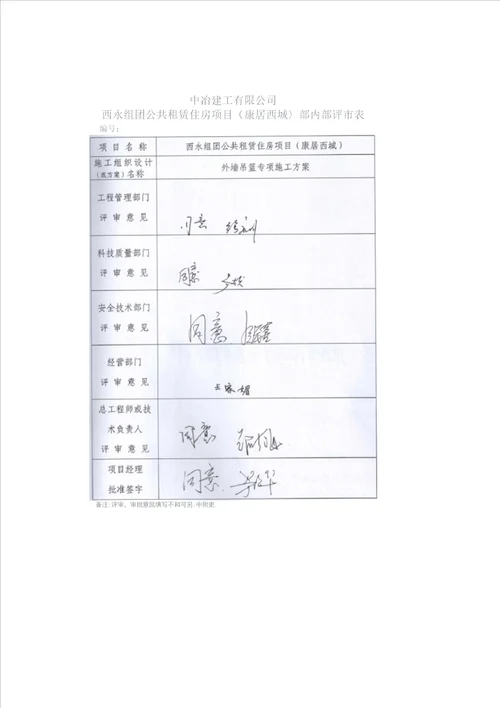 中冶建工有限公司
西永组团公共租赁住房项目（康居西城）部内部评市表
编号：
项目名称 西永组团公共租赁住房项目（康居西城）
施工组织设计 外墙吊篮专项施工方案
（或方案）名称
工程管理部门
评审意见 同意
科技质量部门
评审意见 同意
安全技术部门
评审意见 同意
经营部门
评审意见
总工程师或技
术负责人 同意
评审意见
项目经理 同意
批准签字
备注:评审、审批意见填写不和可另